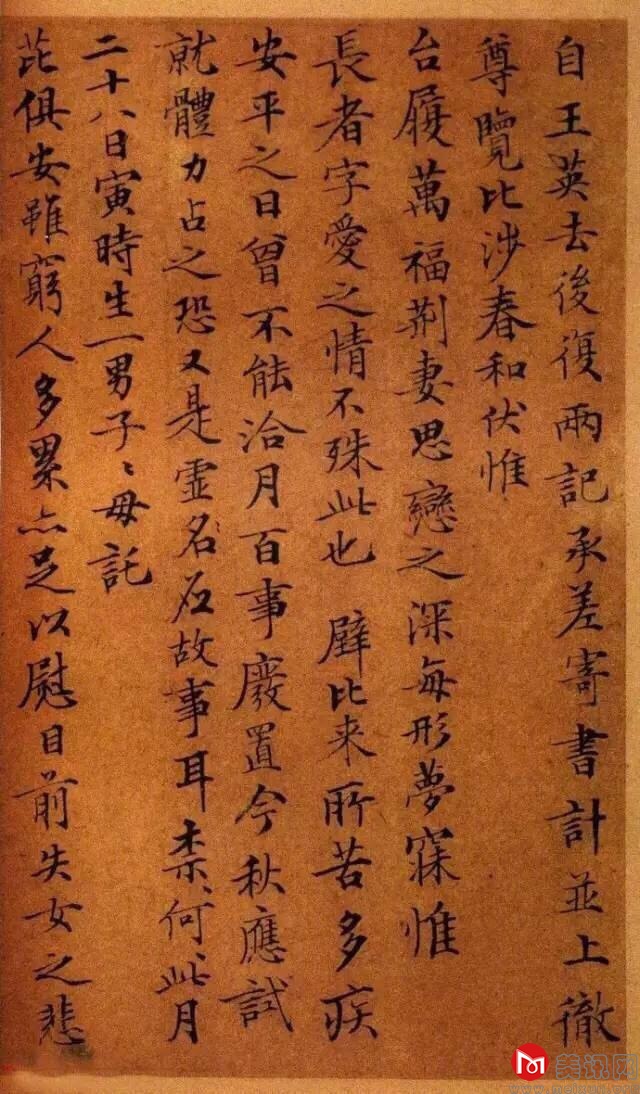 自王英去後復兩記承差寄書計並上徹
尊覽比涉春和伏惟
台履萬福荊妻思戀之深每形夢寐惟
長者字愛之情不殊此也 壁比来所苦多疾
安平之日曾不能洽月百事廢置今秋應試
就體力占之恐又是虛名應故事耳柰〻何〻此月
二十八日寅時生一男子〻母託
芘俱安雖窮人多累亦足以慰目前失女之悲
美讯网